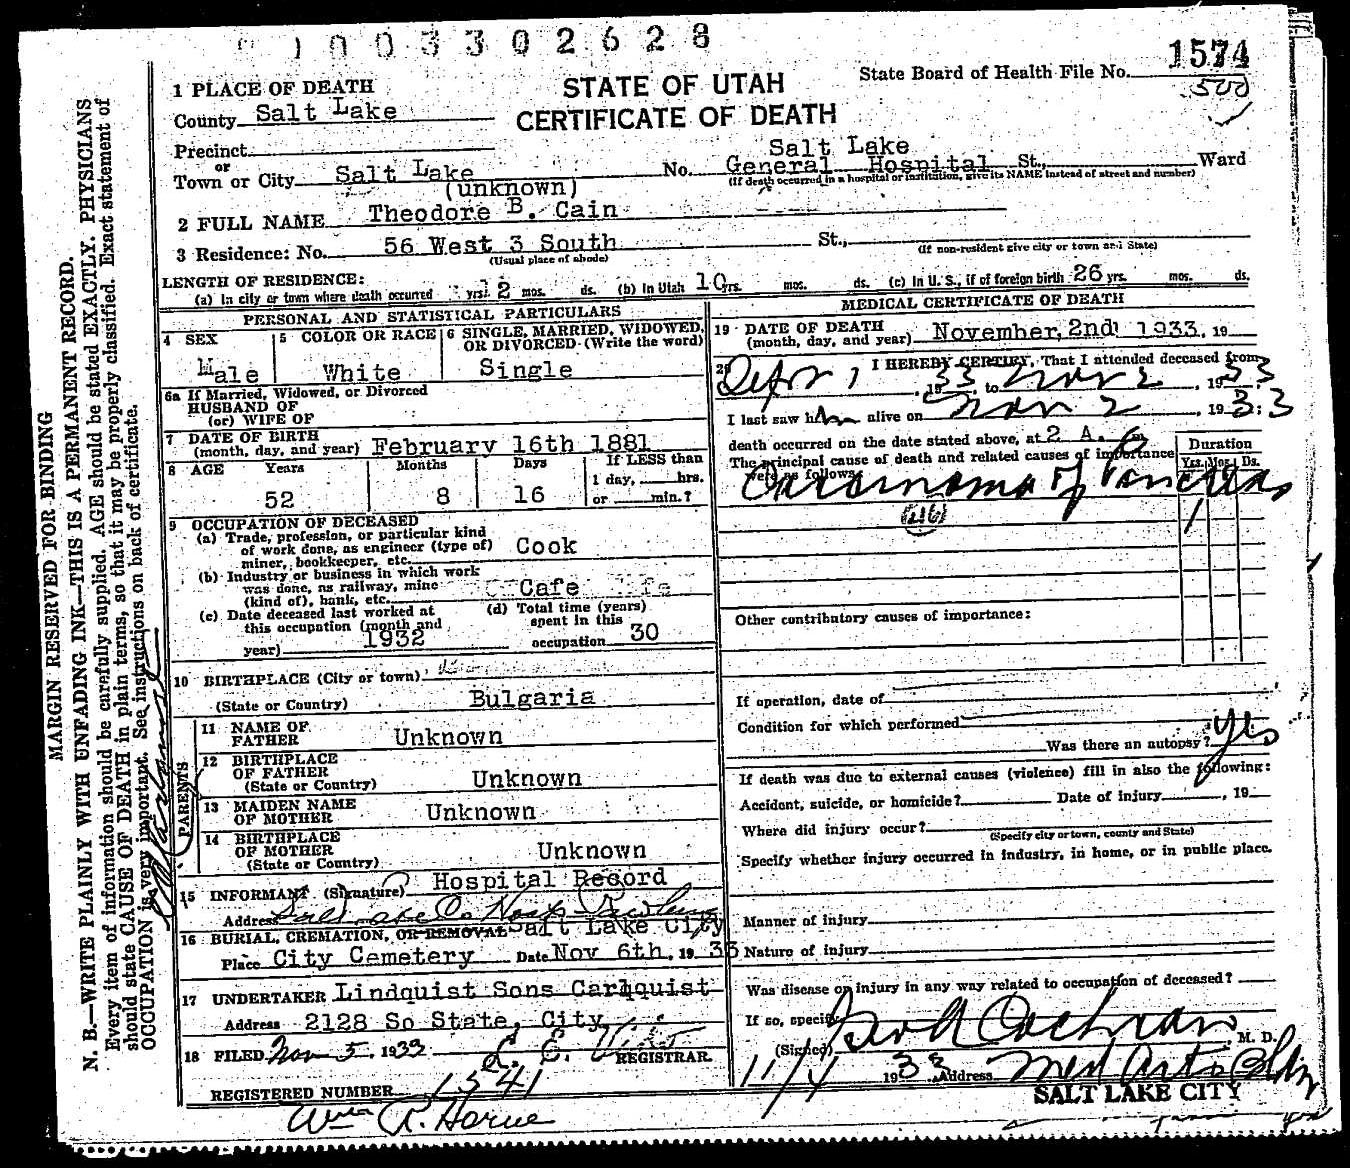 1003302628
1574
500
STATE OF UTAH
CERTIFICATE OF DEATH
State Board of Health File No.
1 PLACE OF DEATH
County Salt Lake
Precinct
or
Town or City Salt Lake
No. Salt Lake General Hospital St., Ward
(If death occurred in a hospital or institution, give its NAME instead of street and number)
(unknown)
2 FULL NAME Theodore B. Cain
3 Residence: No. 56 West 3 South St.,
(Usual place of abode)
(If non-resident give city or town and State)
LENGTH OF RESIDENCE:
(a) In city or town where death occurred yrs. 2 mos. ds. (b) In Utah 10 yrs. mos. ds. (c) In U. S., if of foreign birth 26 yrs. mos. ds.
PERSONAL AND STATISTICAL PARTICULARS
4 SEX
Male
5 COLOR OR RACE
White
6 SINGLE, MARRIED, WIDOWED, OR DIVORCED (Write the word)
Single
6a If Married, Widowed, or Divorced
HUSBAND OF
(or) WIFE OF
7 DATE OF BIRTH
(month, day, and year) February 16th 1881
8 AGE Years Months Days If LESS than
1 day, hrs.
52 8 16 or min.?
9 OCCUPATION OF DECEASED
(a) Trade, profession, or particular kind
of work done, as engineer (type of)
miner, bookkeeper, etc. Cook
(b) Industry or business in which work
was done, as railway, mine
(kind of), bank, etc. Cafe
(c) Date deceased last worked at
this occupation (month and
year) 1932
(d) Total time (years)
spent in this
occupation 30
10 BIRTHPLACE (City or town)
(State or Country) Bulgaria
PARENTS
11 NAME OF
FATHER Unknown
12 BIRTHPLACE
OF FATHER
(State or Country) Unknown
13 MAIDEN NAME
OF MOTHER Unknown
14 BIRTHPLACE
OF MOTHER
(State or Country) Unknown
15 INFORMANT (Signature) Hospital Record
Address Salt Lake Co Hosp
16 BURIAL, CREMATION, OR REMOVAL Salt Lake City
Place City Cemetery Date Nov 6th, 19 33
17 UNDERTAKER Lindquist Sons Carlquist
Address 2128 So State, City
18 FILED Nov 5, 1933
REGISTRAR.
REGISTERED NUMBER 1541
Wm R. Horne
MEDICAL CERTIFICATE OF DEATH
19 DATE OF DEATH
(month, day, and year) November, 2nd 1933, 19
20 I HEREBY CERTIFY, That I attended deceased from
Sept 1, 1933, to Nov 2, 1933
I last saw him alive on Nov 2, 1933
death occurred on the date stated above, at 2 A. m
The principal cause of death and related causes of importance
were as follows:
Duration
Yrs. Mos. Ds.
Carcinoma of Pancreas
(46)
1
Other contributory causes of importance:
If operation, date of
Condition for which performed
Was there an autopsy? Yes
If death was due to external causes (violence) fill in also the following:
Accident, suicide, or homicide? Date of injury , 19
Where did injury occur?
(Specify city or town, county and State)
Specify whether injury occurred in industry, in home, or in public place.
Manner of injury
Nature of injury
Was disease or injury in any way related to occupation of deceased?
If so, specify
(Signed) Cochran, M. D.
11/4 1933 Address Med Arts Bldg
SALT LAKE CITY
MARGIN RESERVED FOR BINDING
N. B.—WRITE PLAINLY WITH UNFADING INK—THIS IS A PERMANENT RECORD.
Every item of information should be carefully supplied. AGE should be stated EXACTLY. PHYSICIANS
should state CAUSE OF DEATH in plain terms, so that it may be properly classified. Exact statement of
OCCUPATION is very important. See instructions on back of certificate.